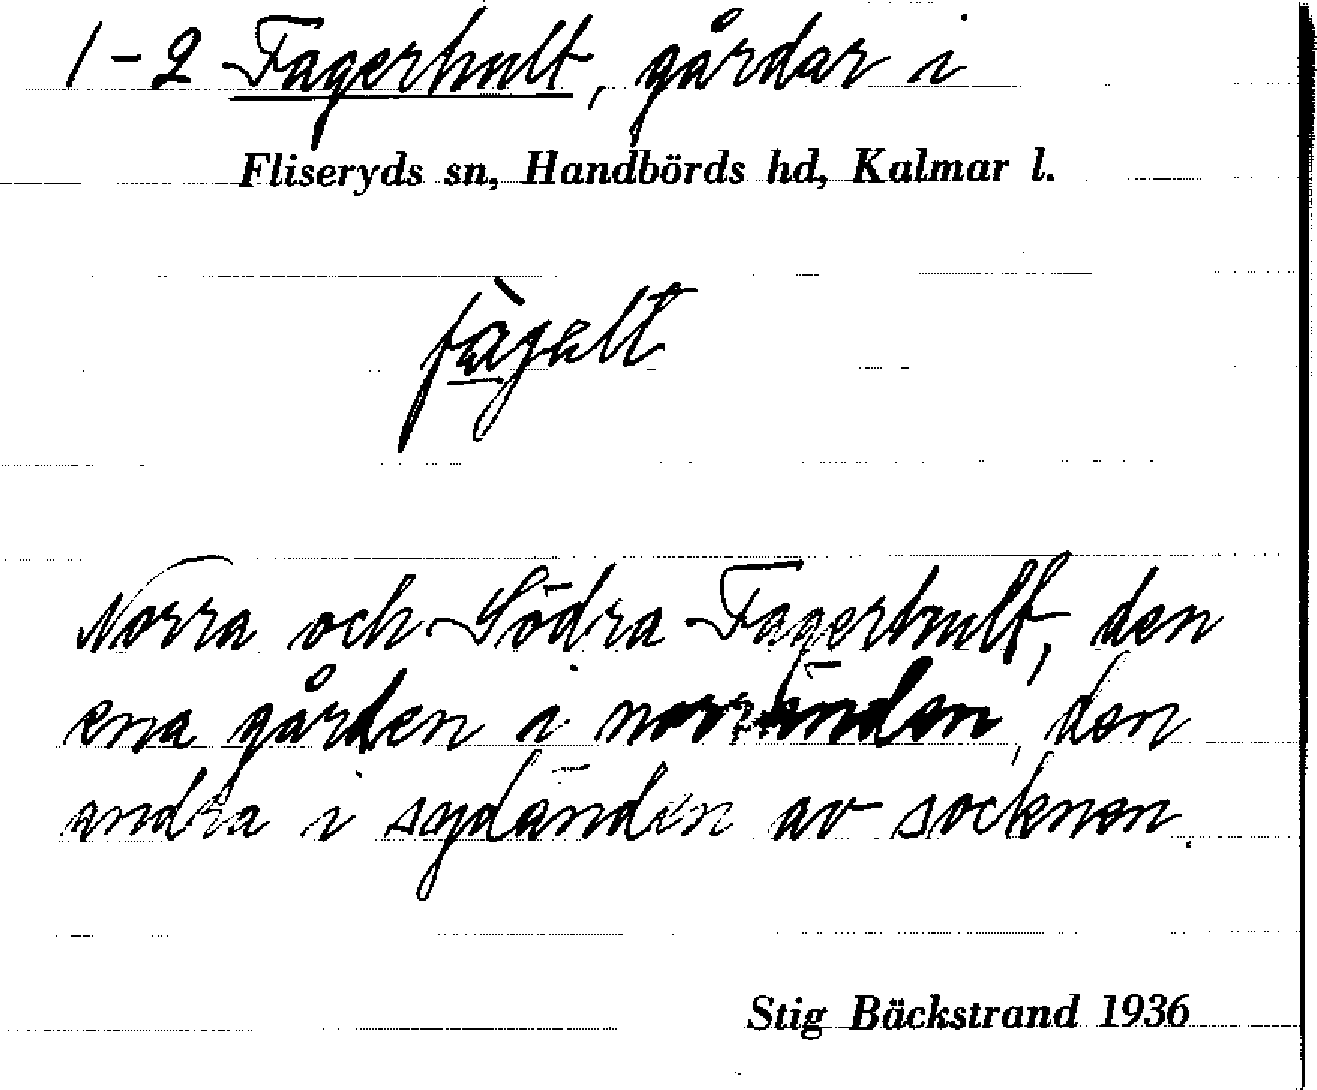 1-2 Fagerhult, gårdar i
Fliseryds sn, Handbörds hd, Kalmar l.
fàgält
Norra och Södra Fagerhult, den
ena gården i norränden, den
andra i sydänden av socknen.
Stig Bäckstrand 1936